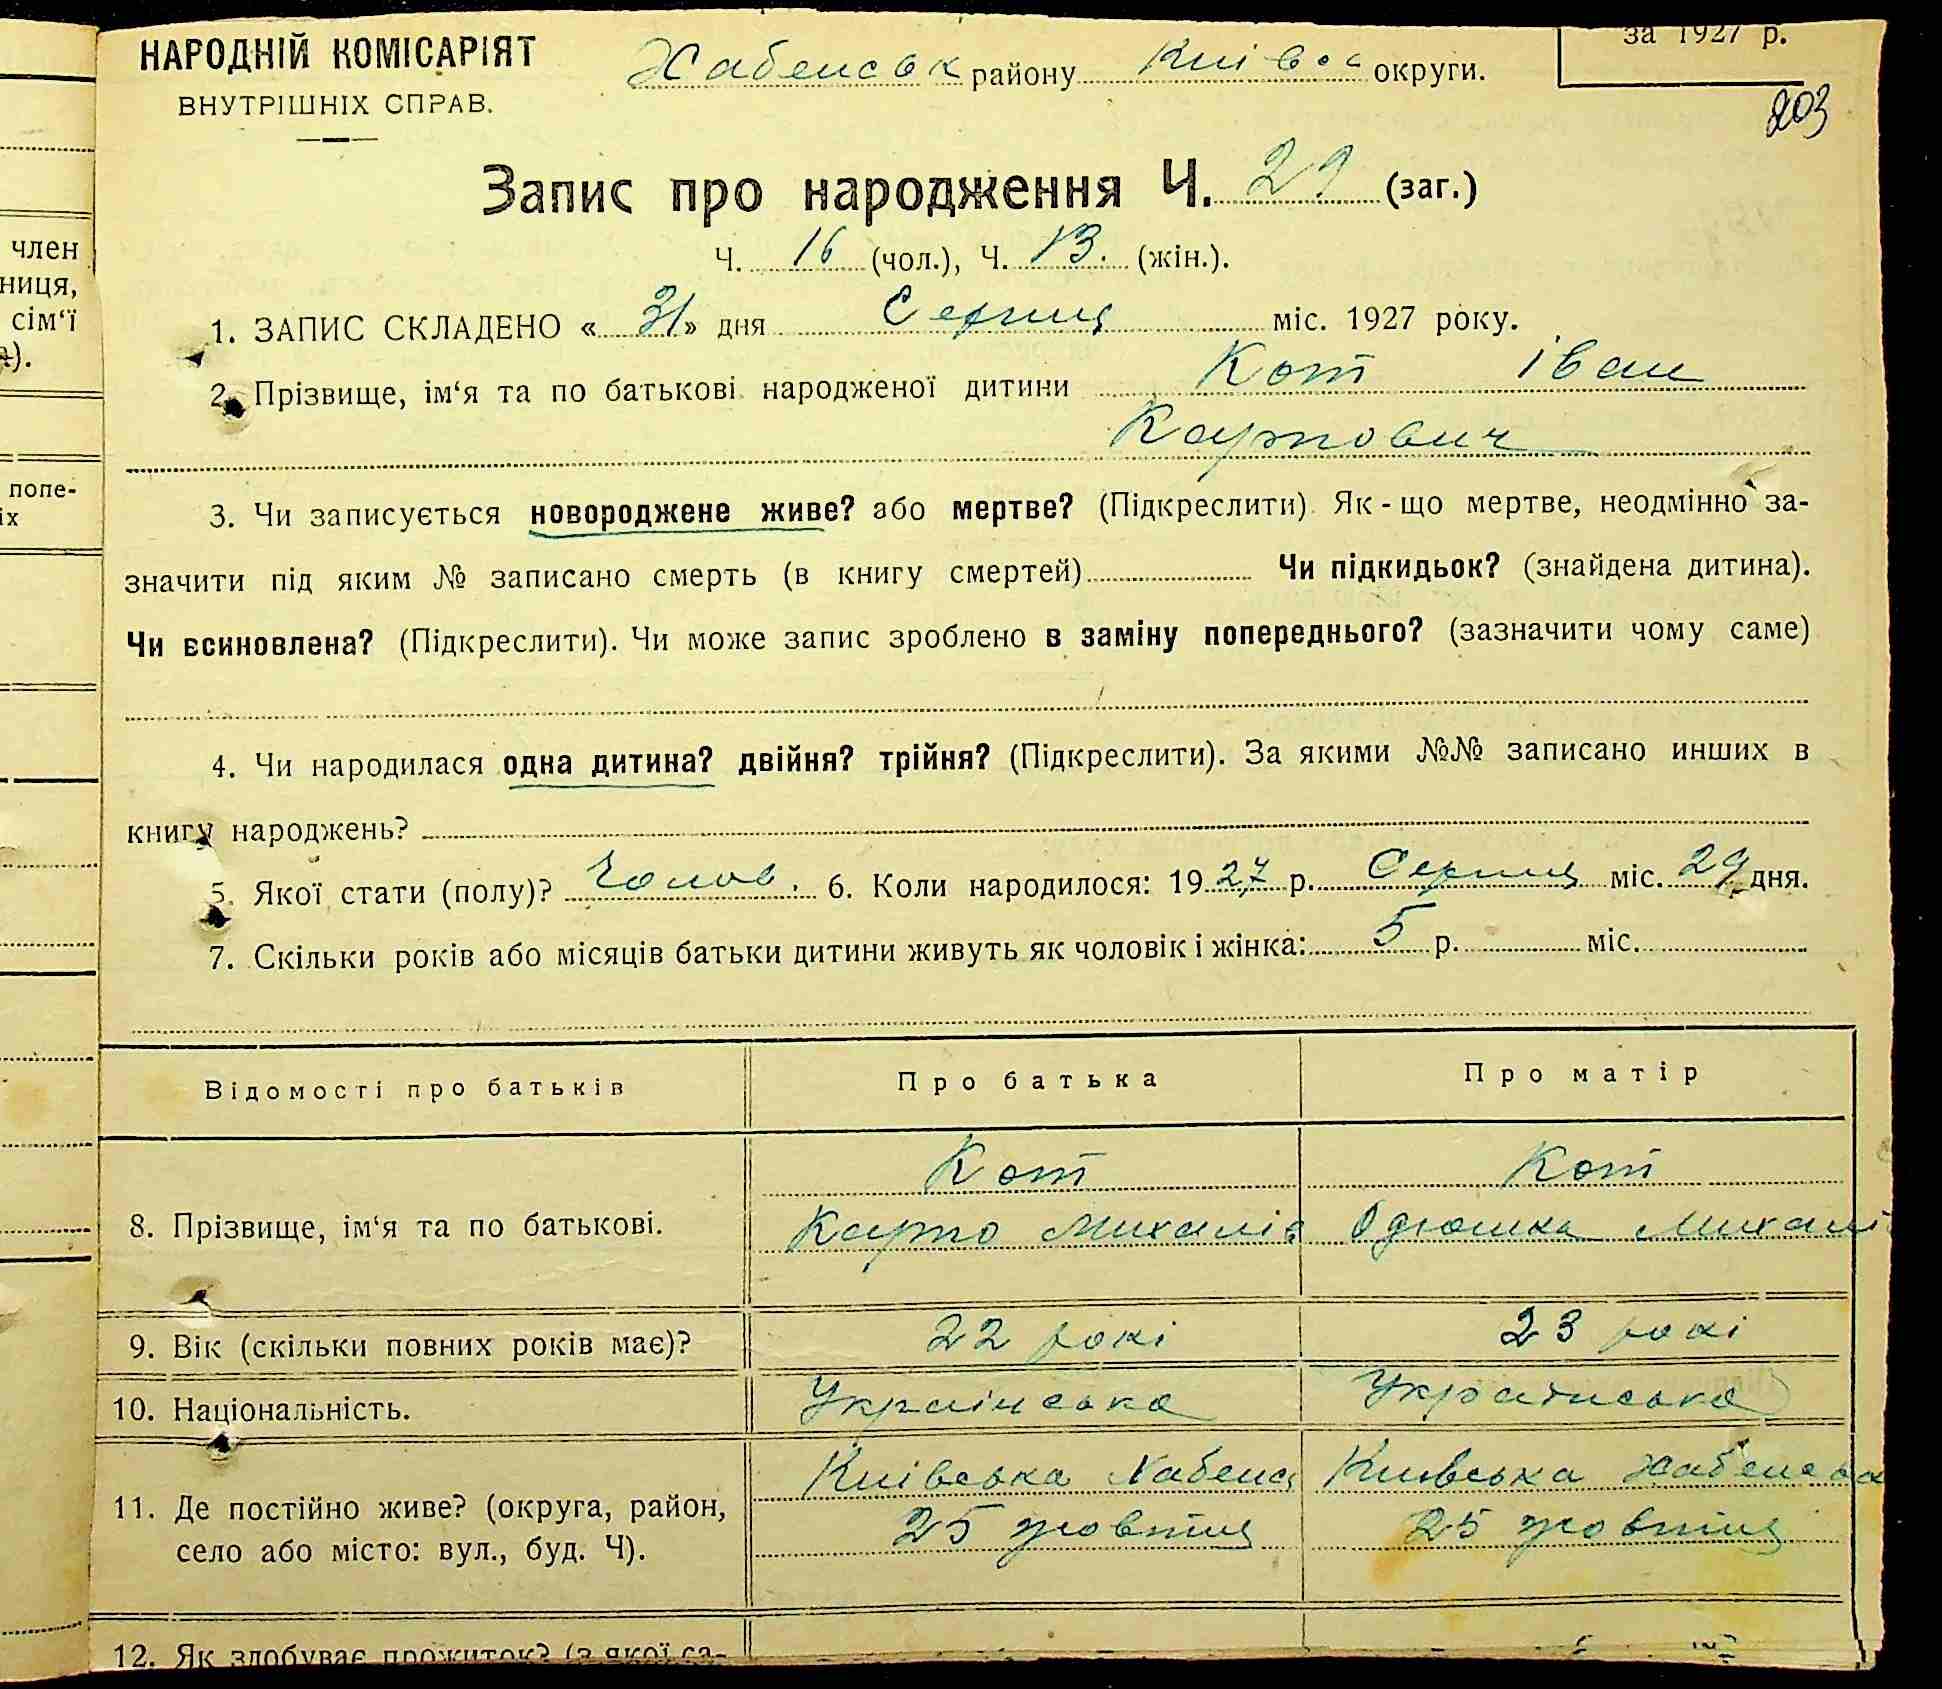 член
ниця,
сім‘ї
попе-
іх
НАРОДНІЙ КОМІСАРІЯТ
ВНУТРІШНІХ СПРАВ.
Хабенськ району Київс округи.
за 1927 р.
203
Запис про народження Ч. 29 (заг.)
Ч. 16 (чол.), Ч. 13. (жін.).
1. ЗАПИС СКЛАДЕНО « 31 » дня Серпця міс. 1927 року.
2. Прізвище, ім‘я та по батькові народженої дитини Кот Іван
Карпович
3. Чи записується новороджене живе? або мертве? (Підкреслити). Як - що мертве, неодмінно за-
значити під яким № записано смерть (в книгу смертей) Чи підкидьок? (знайдена дитина).
Чи єсиновлена? (Підкреслити). Чи може запис зроблено в заміну попереднього? (зазначити чому саме)
4. Чи народилася одна дитина? двійня? трійня? (Підкреслити). За якими №№ записано инших в
книгу народжень?
5. Якої стати (полу)? Чолов. 6. Коли народилося: 1927 р. Серпця міс. 29 дня.
7. Скільки років або місяців батьки дитини живуть як чоловік і жінка: 5 р. міс.
Відомості про батьків Про батька Про матір
Кот Кот
8. Прізвище, ім‘я та по батькові. Карпо Михалів Одюшка Михалі
9. Вік (скільки повних років має)? 22 рокі 23 рокі
10. Національність. Українська Українська
Київська Хабенс Київська Хабенська
11. Де постійно живе? (округа, район, 25 жовтця 25 жовтця
село або місто: вул., буд. Ч).
12. Як здобуває прожиток? (з якої га-